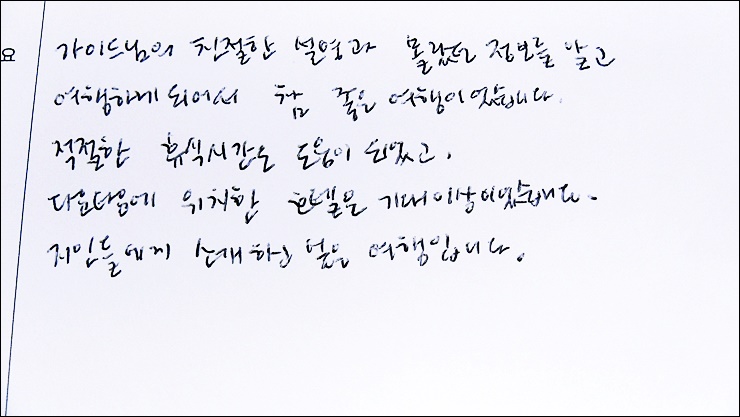 가이드님의 친절한 설명과 몰랐던 정보를 알고
여행하게 되어서 참 좋은 여행이었습니다.
적절한 휴식시간도 도움이 되었고,
위치한 호텔은 기대이상이었습니다.
지인들에게 소개하고 싶은 여행입니다.
요